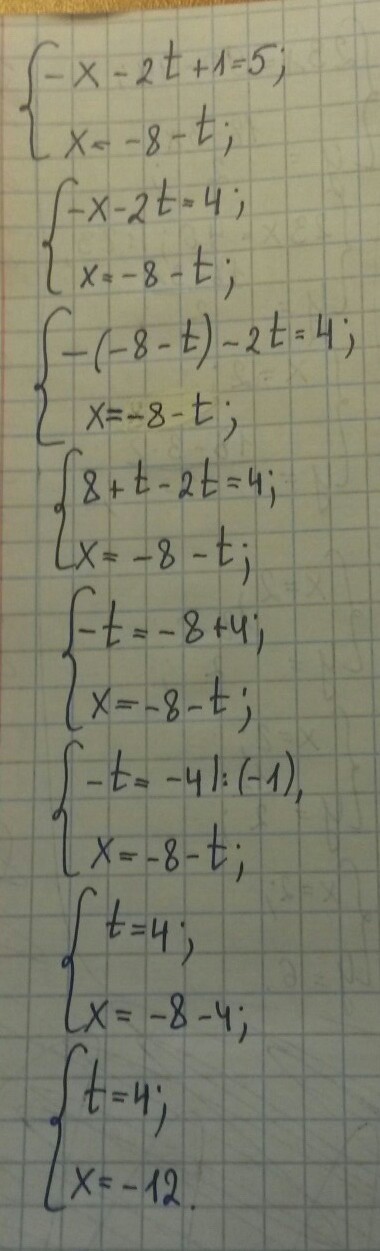 -x-2t+1=5;
x=-8-t;
-x-2t=4;
x=-8-t;
-(-8-t)-2t=4;
x=-8-t;
8+t-2t=4;
x=-8-t;
-t=-8+4;
x=-8-t;
-t=-4|:(-1),
x=-8-t;
t=4;
x=-8-4;
t=4;
x=-12.